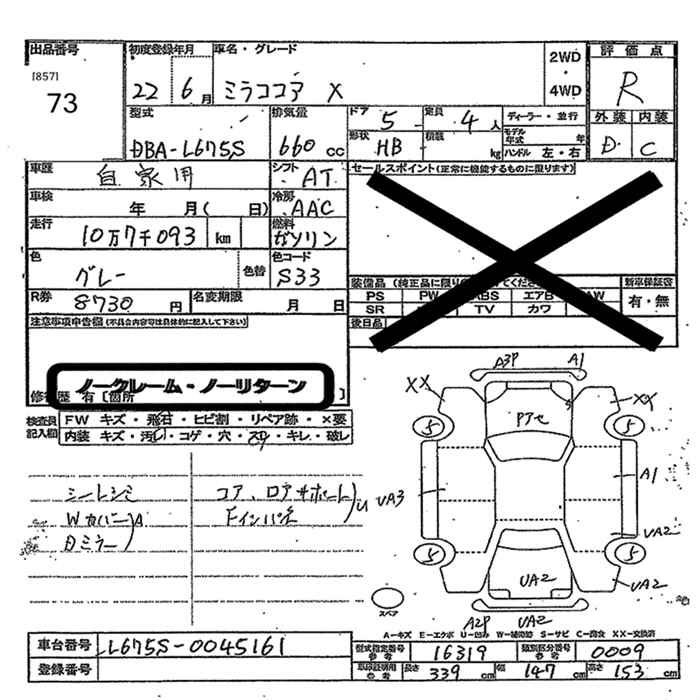 出品番号 初度登録年月 車名・グレード 2WD・4WD 評価点
[857]
73
22 6月 ミラココア X R
型式 排気量 ドア 5 定員 4人 ディーラー・並行 外装 内装
DBA-L675S 660cc 形状 HB 積載 kg モデル年式 年 ハンドル 左・右 D C
車歴 自家用 シフト AT セールスポイント(正常に機能するものに限ります)
車検 年 月( 日) 冷房 AAC
走行 10万7千093 km 燃料 ガソリン
色 グレー 色替 色コード S33
装備品 (純正品に限り てください) 新車保証書
R券 8730円 名変期限 月 日 PS PW ABS エアB AW 有・無
SR TV カワ
注意事項申告欄(不具合内容等は具体的に記入して下さい) 後日品
ノークレーム・ノーリターン
修復歴 有〔箇所 〕
検査員記入欄 FW キズ・飛石・ヒビ割・リペア跡・×要
内装 キズ・汚レ・コゲ・穴・スレ・キレ・破レ
A3P A1
XX XX
5 5
Pアセ
シーレシミ コア、ロアサポート
WカバーA Fインパネ U
Dミラー
UA3 A1
UA2
5 5
UA2 UA2
スペア
A2P UA2
A-キズ E-エクボ U-凹み W-補修跡 S-サビ C-腐食 XX-交換済
車台番号 L675S-0045161 型式指定番号 参考 16319 類別区分番号 参考 0009
登録番号 車車証明用 参考 長さ 339cm 幅 147cm 高さ 153cm